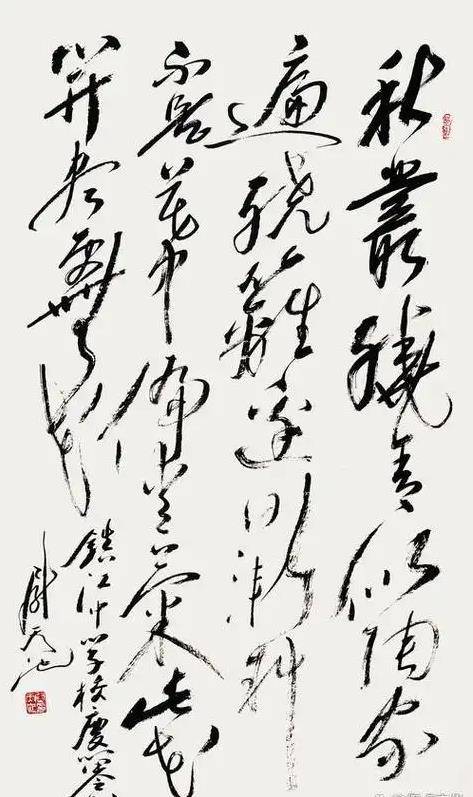 秋叢繞舍似陶家
遍繞籬邊日漸斜
不是花中偏愛菊此花
開盡更無花
鎮江中學校慶
尉天池